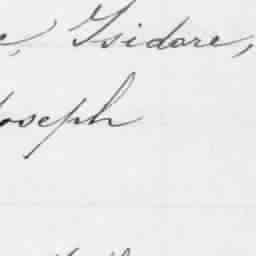 e, Isidore,
Joseph